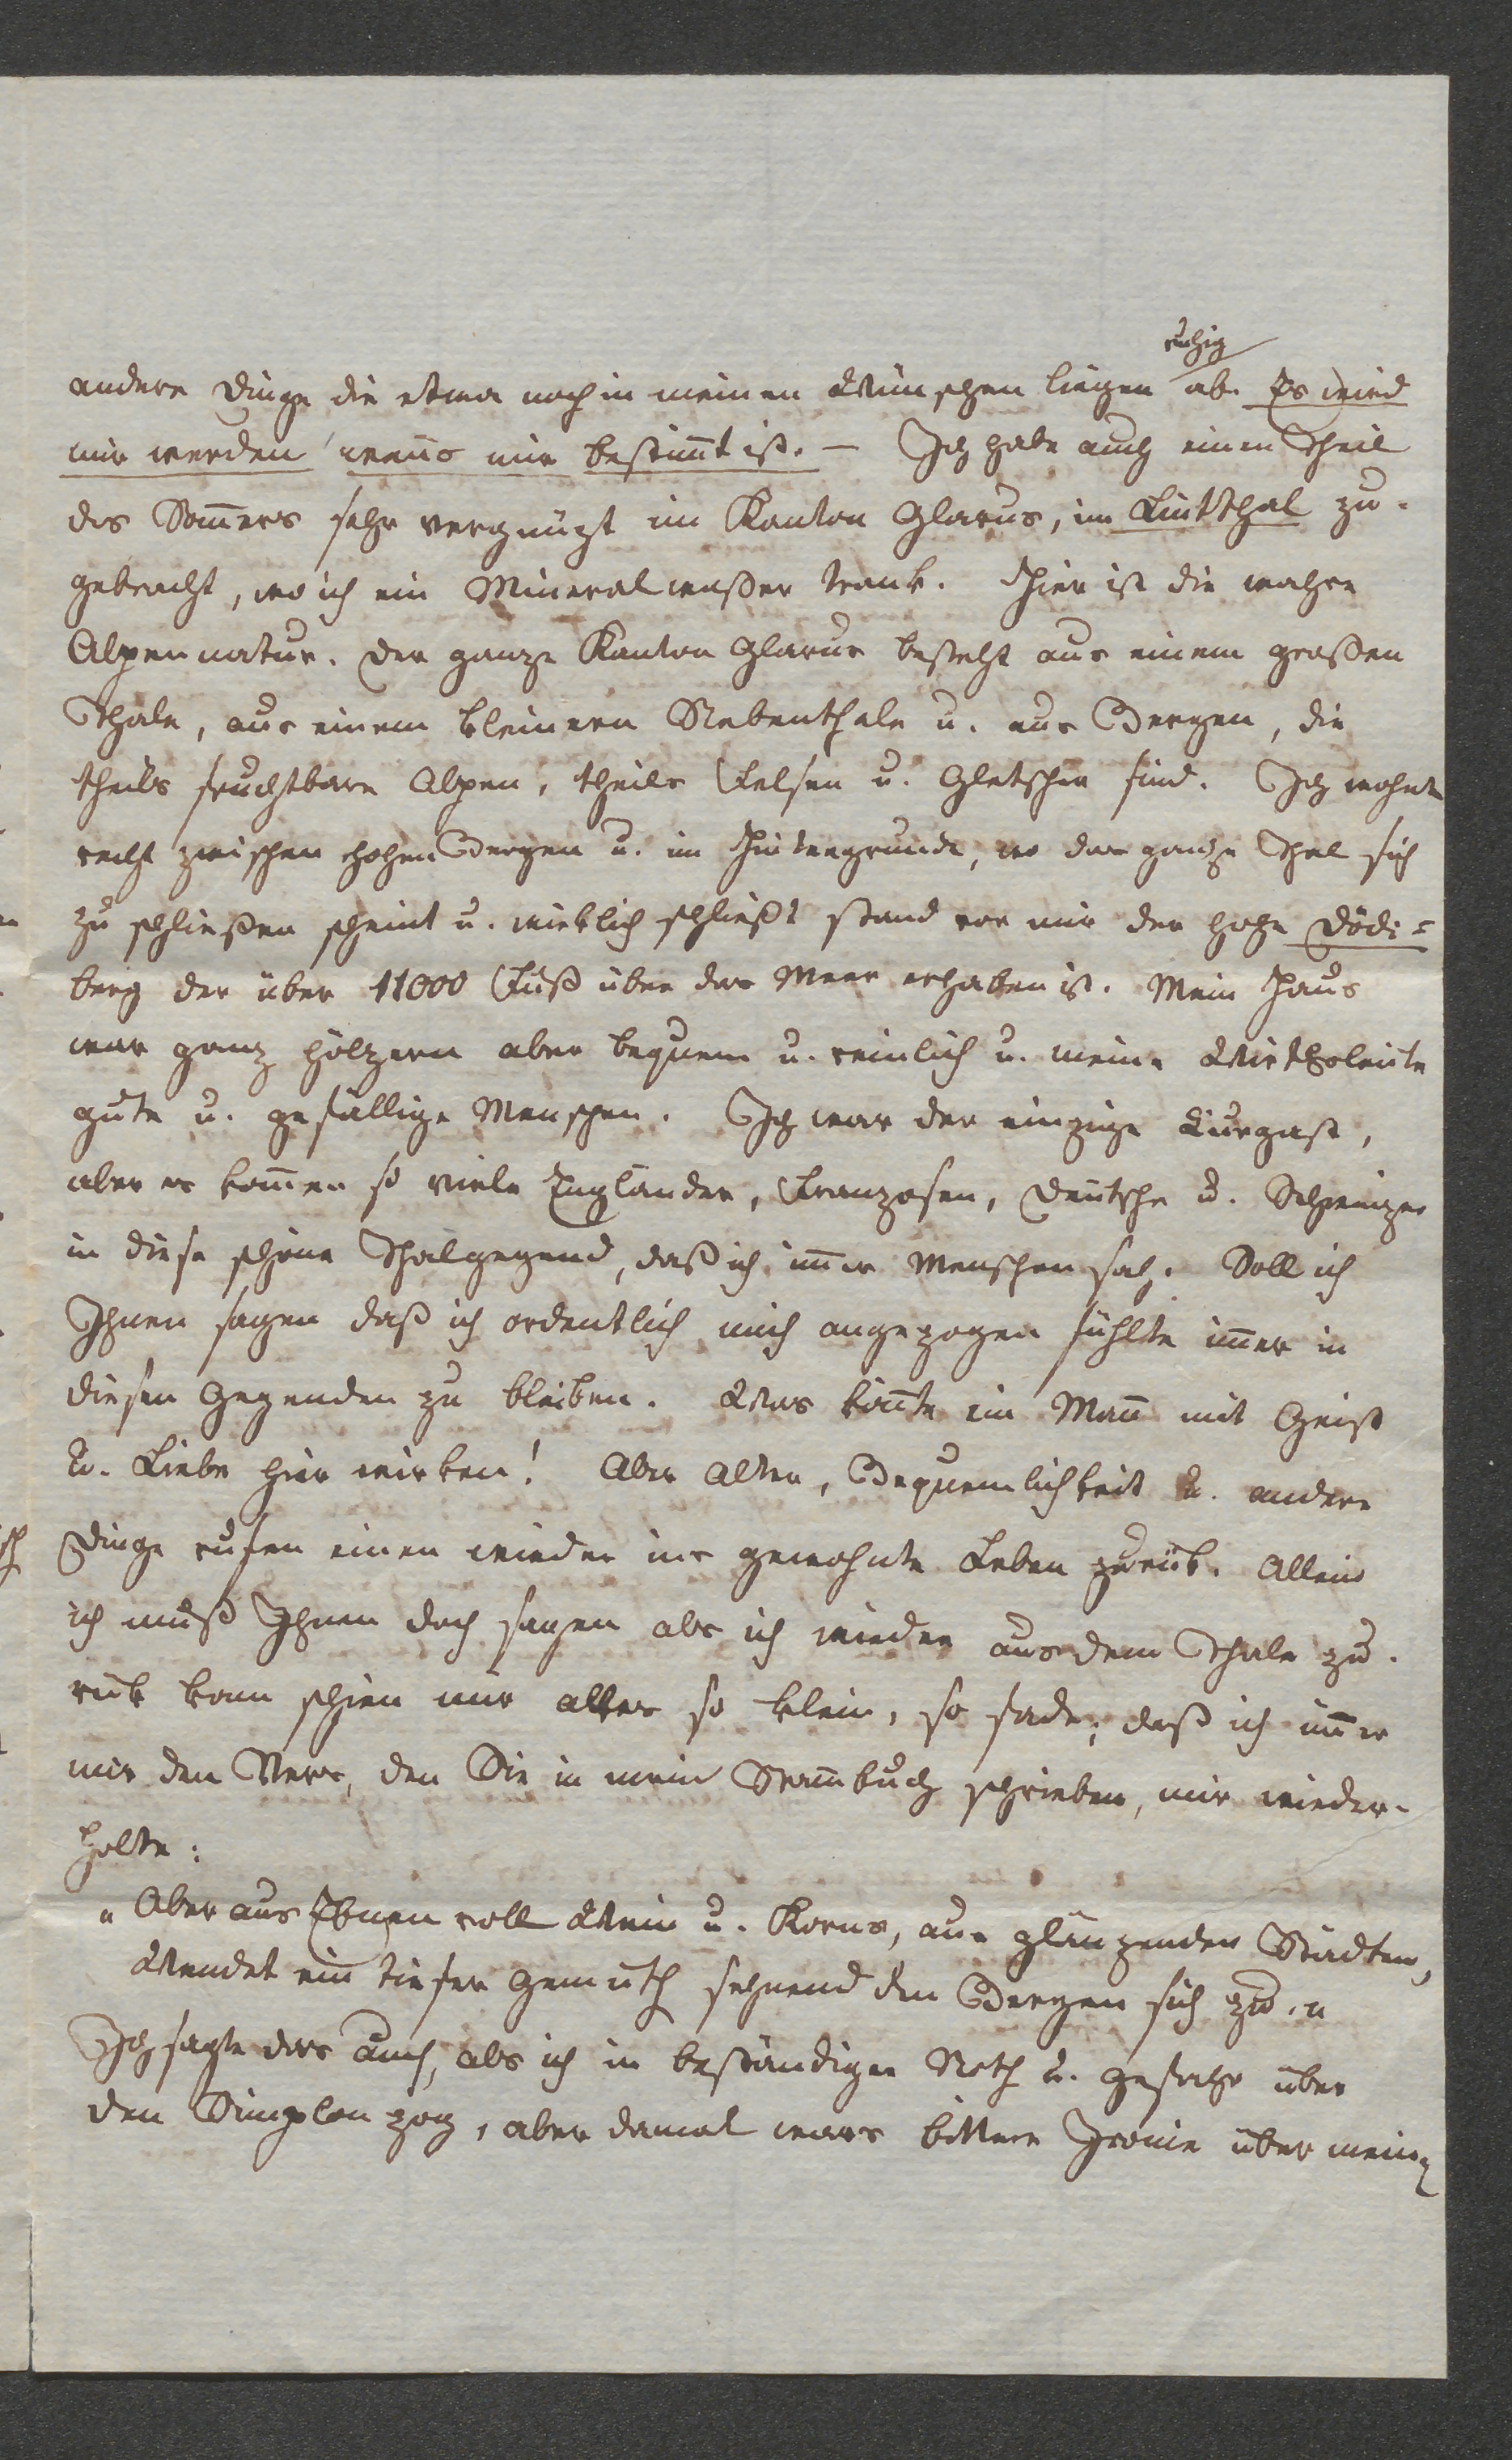 ruhig
andere Dinge die etwa noch in meinen Wünschen liegen ab. Es wird
mir werden wenn̅s mir bestim̅t ist. — Ich habe auch einen Theil
des Som̅ers sehr vergnügt im Kanton Glarus, im Lintthal zu-
gebracht, wo ich ein Mineralwaßer trank. Hier ist die wahre
Alpennatur. Der ganze Kanton Glarus besteht aus einem großen
Thale, aus einem kleinern Nebenthale u. aus Bergen, die
theils fruchtbare Alpen, theils Felsen u. Gletscher sind. Ich wohnte
recht zwischen hohen Bergen u. im Hintergrunde, wo das ganze Thal sich
zu schließen scheint u. wirklich schließt stand vor mir der hohe Dödi=
berg der über 11000 Fuß über das Meer erhaben ist. Mein Haus
war ganz hölzern aber bequem u. reinlich u. meine Wirthsleute
gute u. gefällige Menschen. Ich war der einzige Kurgast,
aber es kom̅en so viele Engländer, Franzosen, Deutsche u. Schweizer
in diese schöne Thalgegend, daß ich im̅er Menschen sah. Soll ich
Ihnen sagen daß ich ordentlich mich angezogen fühlte im̅er in
diesen Gegenden zu bleiben. Was kön̅te ein Man̅ mit Geist
u. Liebe hier wirken! Aber Alter, Bequemlichkeit u. andere
Dinge rufen einen wieder ins gewohnte Leben zurük. Allein
ich muß Ihnen doch sagen als ich wieder aus dem Thale zu-
rük kam schien mir alles so klein, so fade, daß ich im̅er
mir den Vers, den Sie in mein Stam̅buch schrieben, mir wieder-
holte:
„Aber aus Ebnen voll Wein u. Korns, aus glänzenden Städten,
Wendet ein tiefer Gemüth sehnend den Bergen sich zu."
Ich sagte das auch, als ich in beständiger Noth u. Gefahr über
den Simplon zog, aber damal wars bittere Ironie über meine